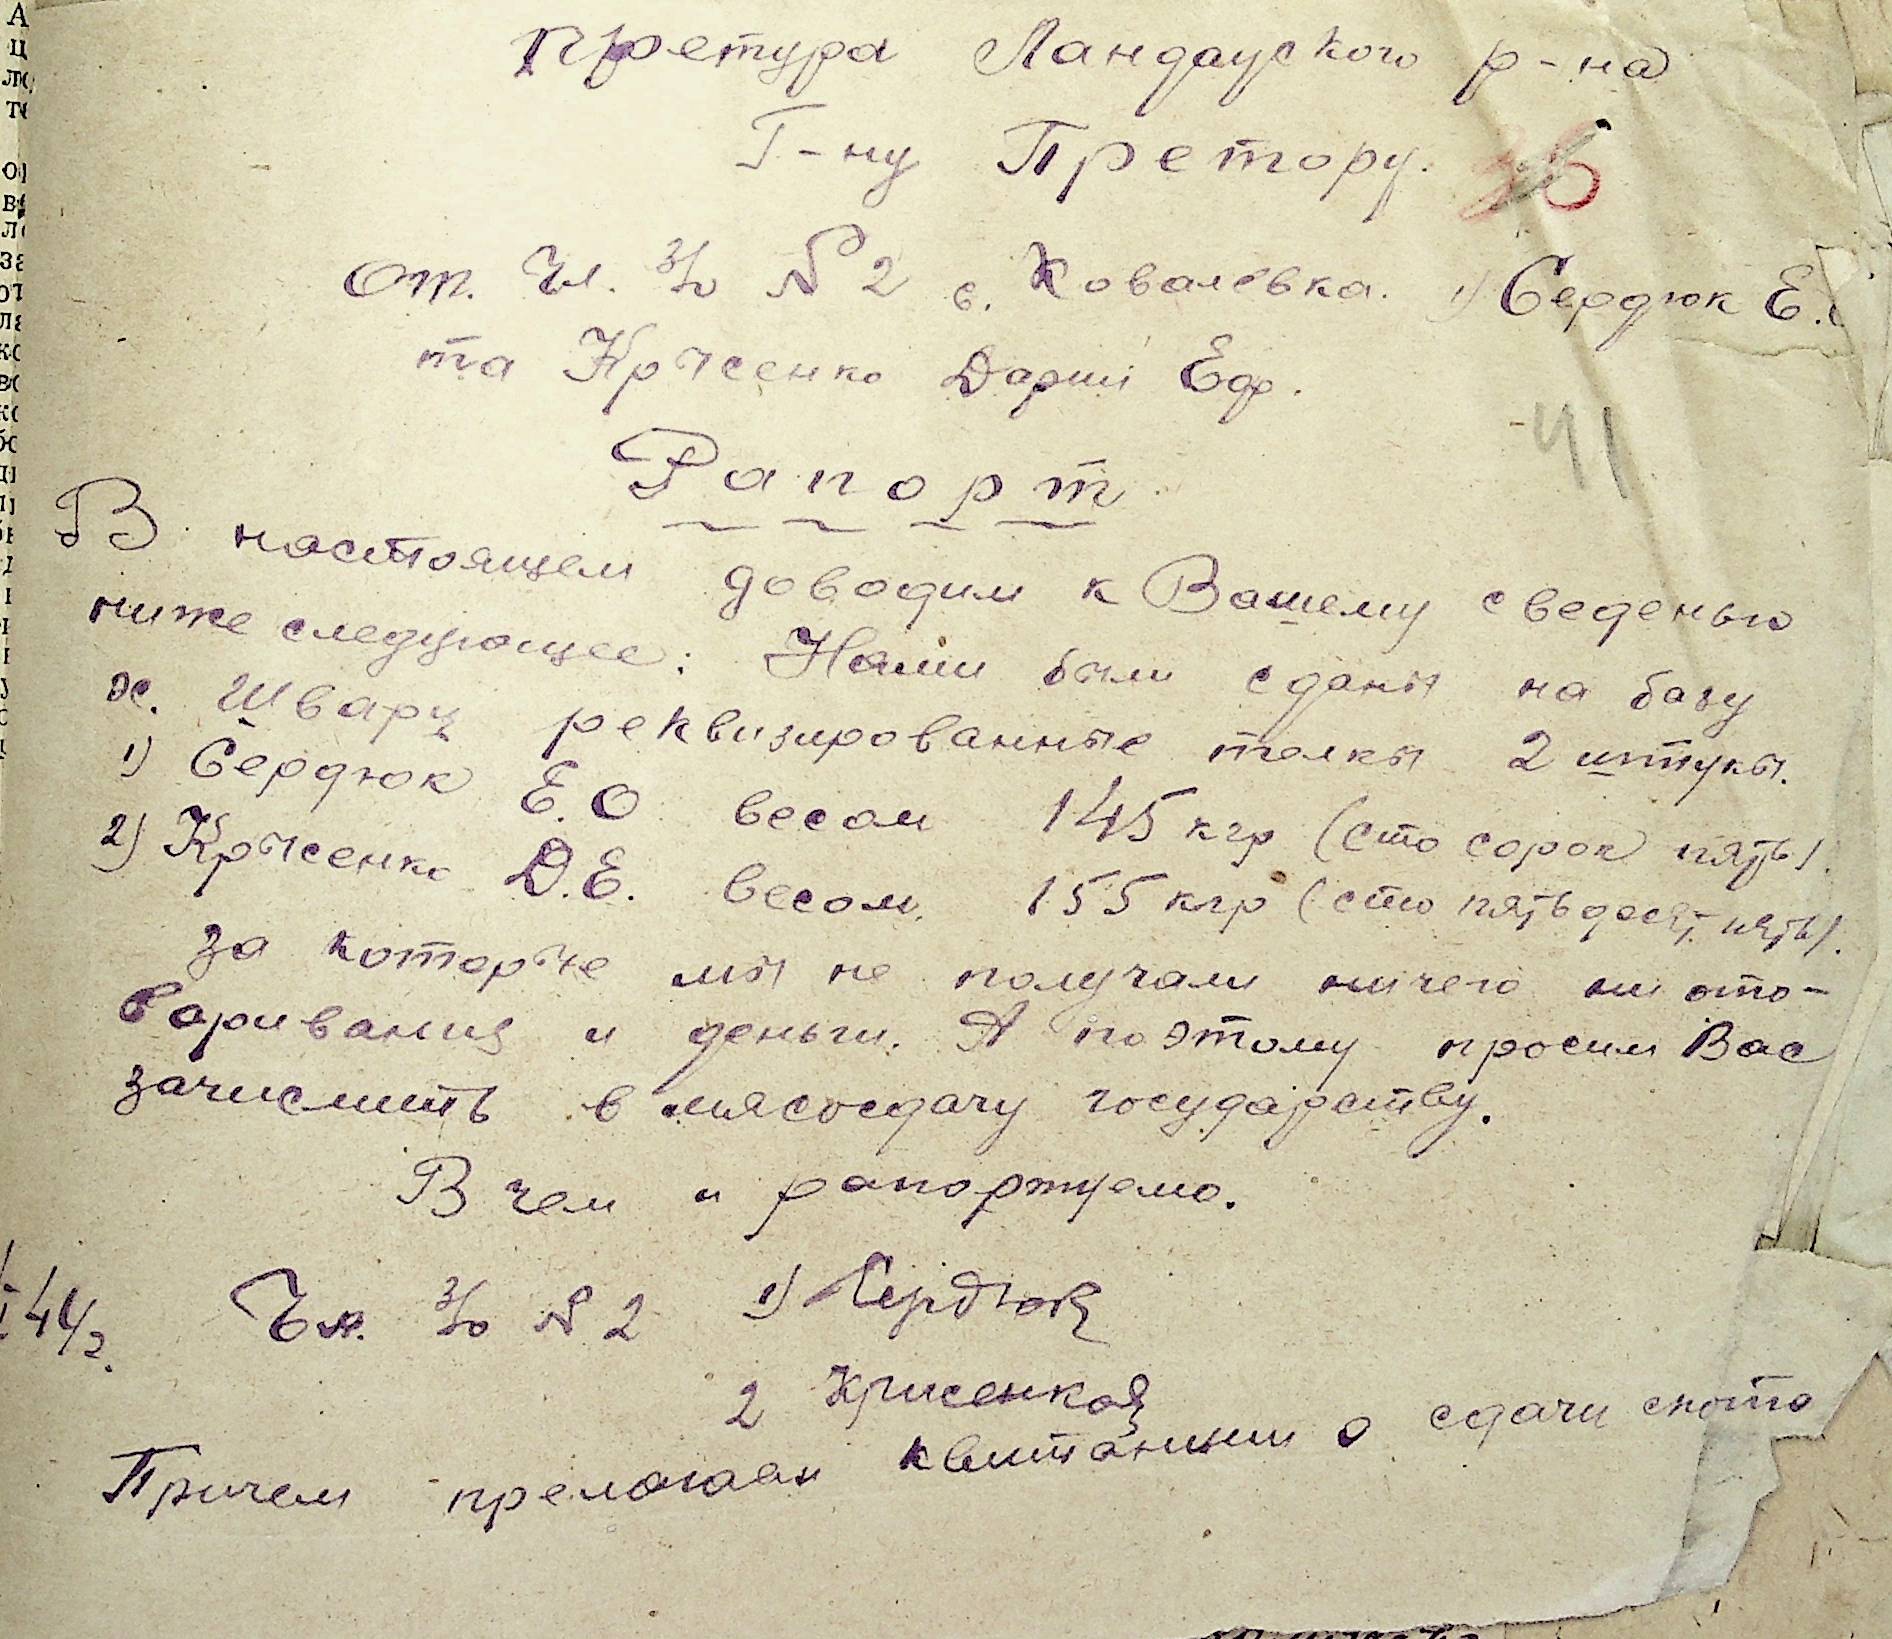 Претура Ландауского р-на
Г-ну Претору.
От. Чл. З/о № 2 с. Ковалевка. 1) Сердюк Е.
та Крысенко Дарии Еф.
41
Рапорт
В настоящем доводим к Вашему сведенью
ниже следующее: Нами были сданы на базу
х. Шварц реквизированные телки 2 штуки.
1) Сердюк Е.О весом 145 кгр (сто сорок пять).
2) Крысенко Д.Е. весом. 155 кгр (сто пятьдесят пять).
за которые мы не получали ничего ни ото-
варивания и деньги. А поэтому просим Вас
зачислить в мясосдачу государству.
В чем и рапортуемо.
44 г.
Чл. З/о № 2 1) Сердюк
2 Крисенкоя
Причем прелогаем квитанции о сдачи скота